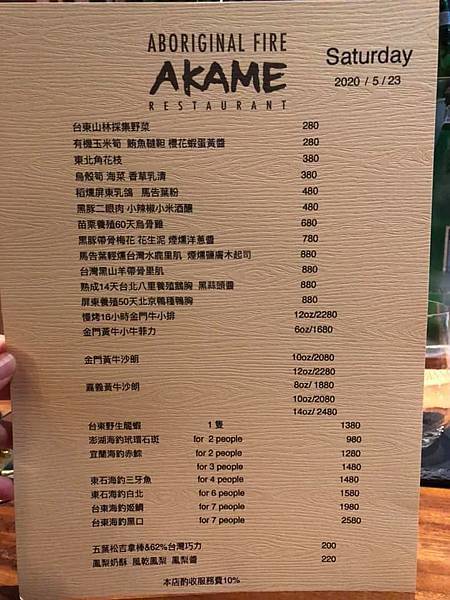 ABORIGINAL FIRE
AKAME
RESTAURANT
Saturday
2020 / 5 / 23
台東山林採集野菜 280
有機玉米筍 鮪魚韃靼 櫻花蝦蛋黃醬 280
東北角花枝 380
烏殼筍 海菜 香草乳清 380
稻燻屏東乳鴿 馬告葉粉 480
黑豚二眼肉 小辣椒小米酒釀 480
苗栗養殖60天烏骨雞 680
黑豚帶骨梅花 花生泥 煙燻洋蔥醬 780
馬告葉輕燻台灣水鹿里肌 煙燻鹽膚木起司 880
台灣黑山羊帶骨里肌 880
熟成14天台北八里養殖鵝胸 黑蒜頭醬 880
屏東養殖50天北京鴨種鴨胸 880
慢烤16小時金門牛小排 12oz/2280
金門黃牛小牛菲力 6oz/1680
金門黃牛沙朗 10oz/2080
12oz/2280
嘉義黃牛沙朗 8oz/ 1880
10oz/2080
14oz/ 2480
台東野生龍蝦 1 隻 1380
澎湖海釣玳環石斑 for 2 people 980
宜蘭海釣赤鯮 for 2 people 1280
for 3 people 1480
東石海釣三牙魚 for 4 people 1480
東石海釣白北 for 6 people 1580
台東海釣姬鯛 for 7 people 1980
台東海釣黑口 for 7 people 2580
五葉松吉拿棒&62%台灣巧力 200
鳳梨奶酥 風乾鳳梨 鳳梨醬 220
本店酌收服務費10%